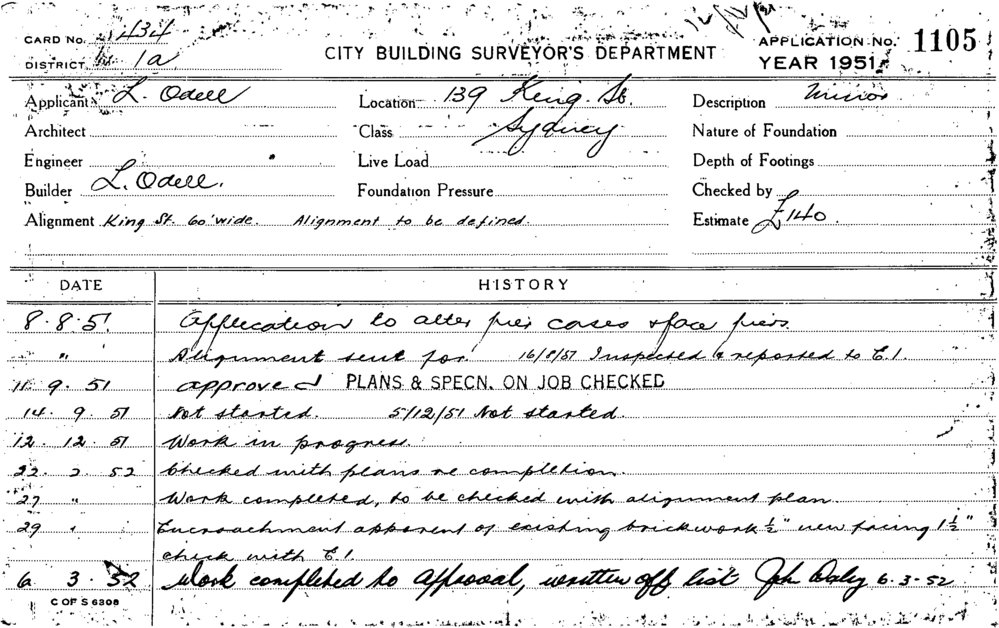 CARD NO. 434
DISTRICT 1a
CITY BUILDING SURVEYOR'S DEPARTMENT
APPLICATION No. 1105
YEAR 1951
Applicant L. Odell Location 139 King St. Description minor
Architect Class Sydney Nature of Foundation
Engineer Live Load Depth of Footings
Builder L. Odell. Foundation Pressure Checked by
Alignment King St. 60' wide. Alignment to be defined. Estimate £140.
DATE HISTORY
8.8.51. Application to alter pier cases & face piers.
" Alignment sent for. 16/8/51 Inspected & reported to C.I.
11. 9. 51 approved PLANS & SPECN. ON JOB CHECKED
14. 9. 51 Not started. 5/12/51 Not started.
12. 12. 51 Work in progress.
22. 2. 52 Checked with plans re completion.
27 " Work completed, to be checked with alignment plan.
29 " Encroachment apparent of existing brickwork ½" new facing 1½"
check with C.I.
6. 3. 52 Work completed to approval, written off list Jph Daly 6.3-52
C OF S 6308